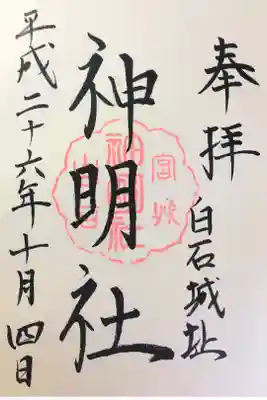 奉拝
白石城址
神明社
平成二十六年十月四日